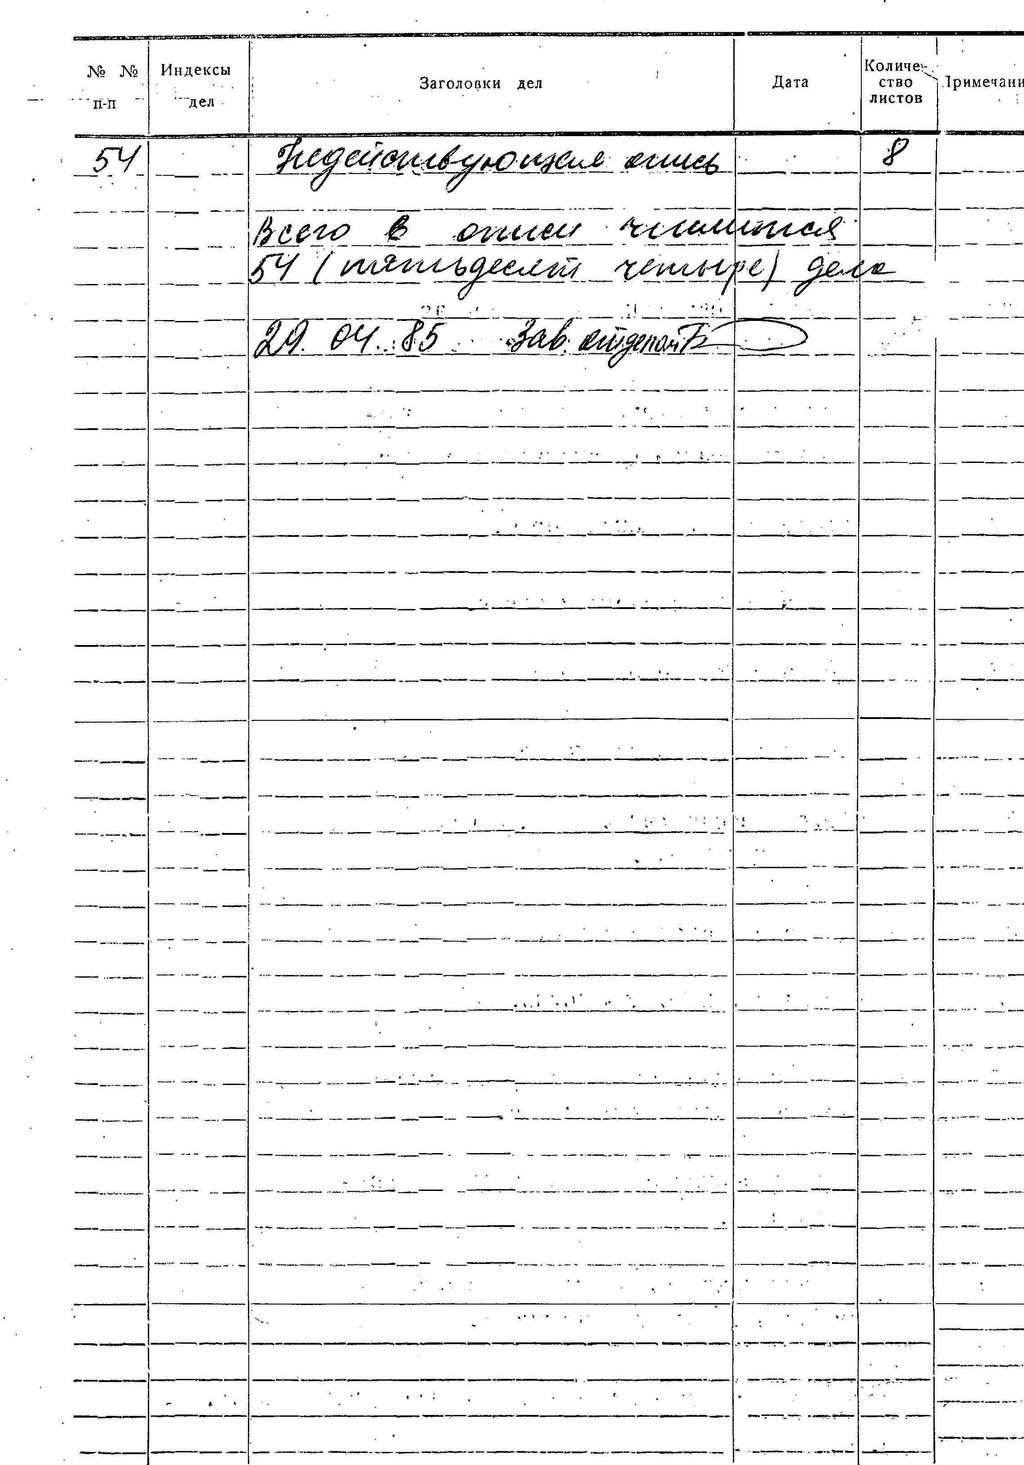 № № п-п Индексы дел Заголовки дел Дата Количество листов Примечани
54 Недействующая опись 8
Всего в описи числится
54 (пятьдесят четыре) дела
29.04.85 Зав. отделом